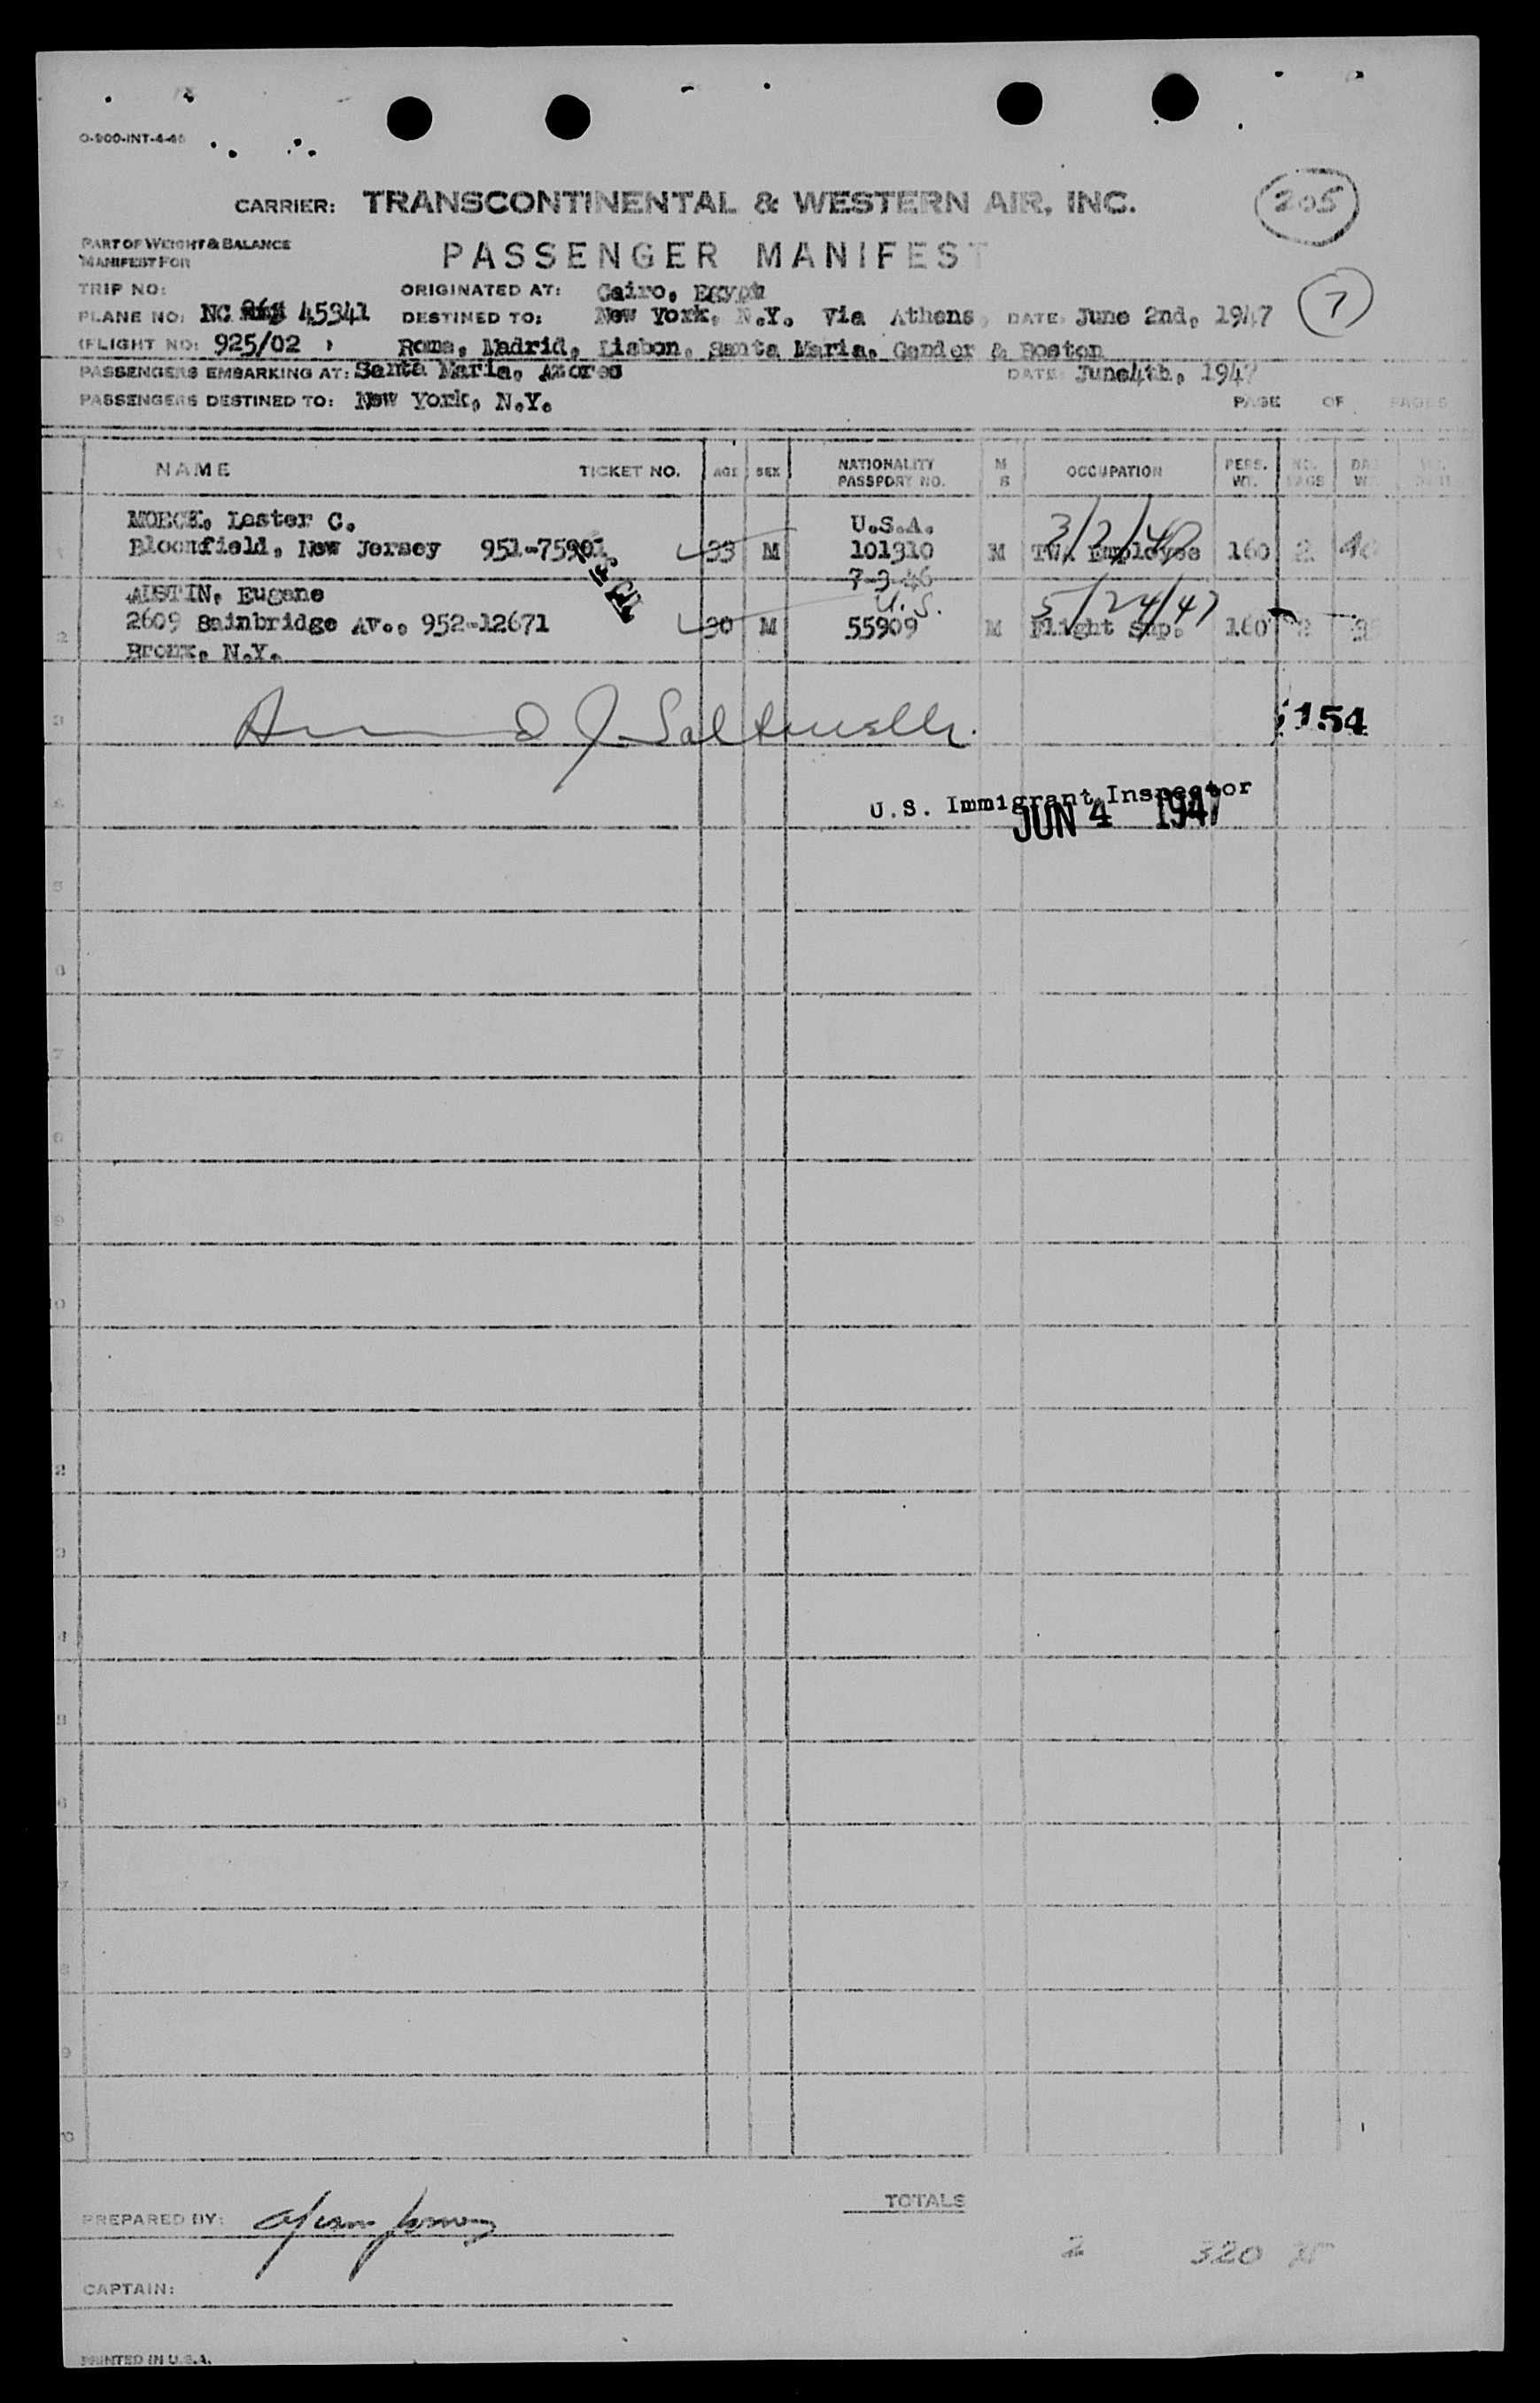 O-900-INT-4-46
CARRIER: TRANSCONTINENTAL & WESTERN AIR, INC.
205
PART OF WEIGHT & BALANCE
MANIFEST FOR
PASSENGER MANIFEST
TRIP NO: ORIGINATED AT: Cairo, Egypt
PLANE NO: NC 45341 DESTINED TO: New York, N.Y. Via Athens, DATE: June 2nd, 1947
7
(FLIGHT NO: 925/02 Rome, Madrid, Lisbon, Santa Maria, Gander & Boston
PASSENGERS EMBARKING AT: Santa Maria, Azores DATE: June 4th, 1947
PASSENGERS DESTINED TO: New York, N.Y. PAGE OF PAGES
NAME TICKET NO. AGE SEX NATIONALITY PASSPORT NO. M S OCCUPATION PERS. WT. NO. BAGS
Lester C. U.S.A. 3/2/
Bloomfield, New Jersey 951-75901 33 M 101310 M TWA Employee 160 2 40
7-3-46
AUSTIN, Eugene U.S. 5/24/47
2 2609 Bainbridge Av., 952-12671 30 M 55909 M Flight Sup. 160 2
Bronx, N.Y.
3 154
U.S. Immigrant Inspector
JUN 4 1947
TOTALS
PREPARED BY:
2 320
CAPTAIN:
PRINTED IN U.S.A.